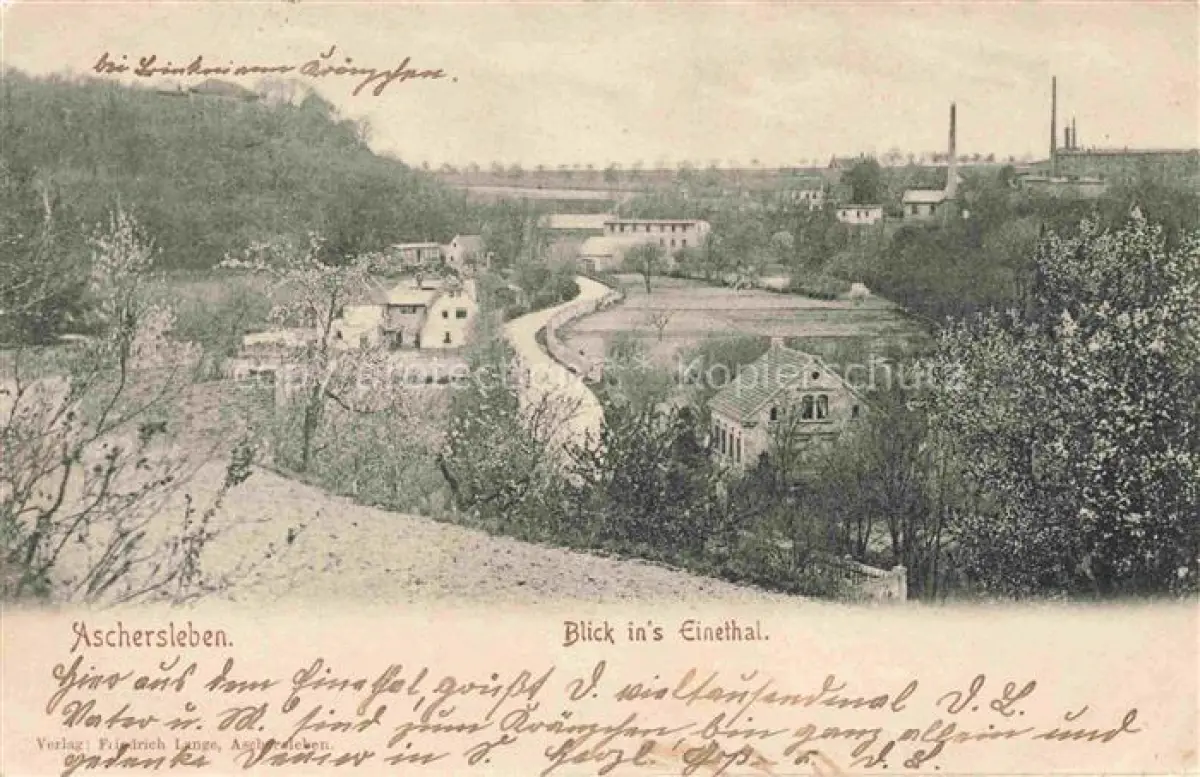 bei Trinkerei am Kränzchen.
copyright Kopierschutz
Aschersleben. Blick in's Einethal.
Hier aus dem Einethal, grüßt D. vieltausendmal D. L.
Vater u. M. sind zum Kränzchen, bin ganz allein und
Verlag: Friedrich Lange, Aschersleben.
gedenke Deiner in T. Herzl. Gr. D. L.